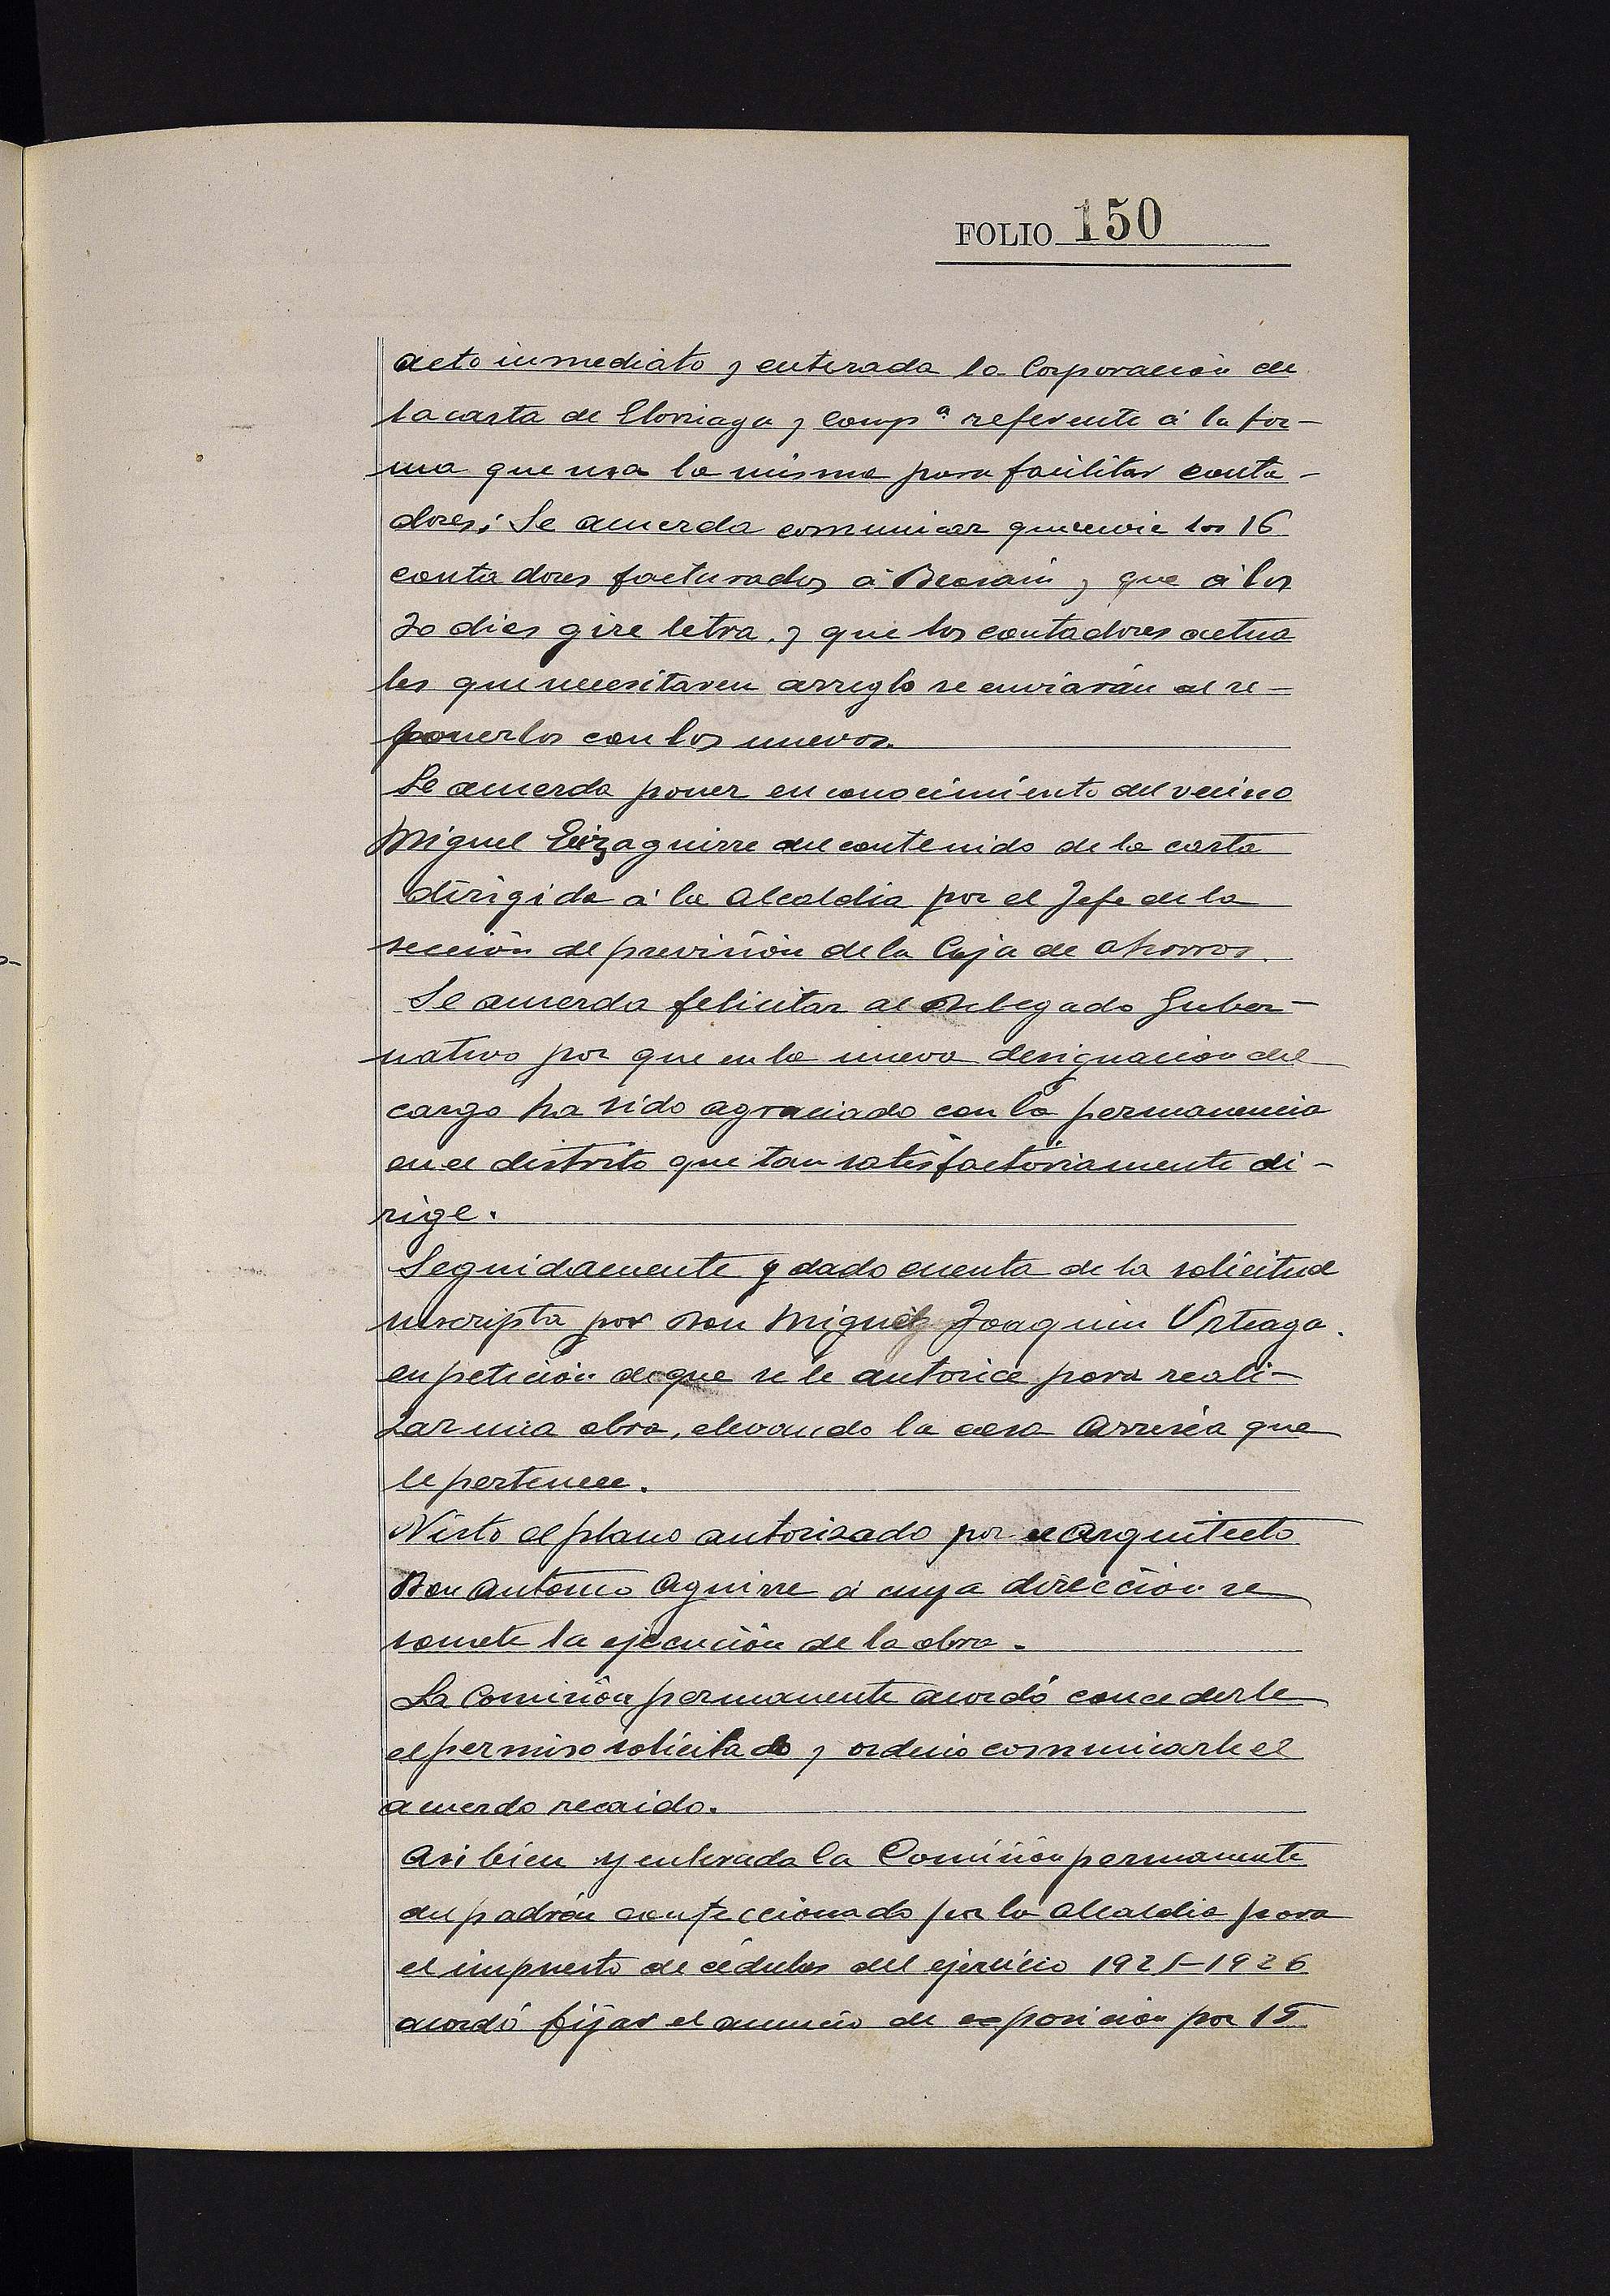 FOLIO 150
acto inmediato y enterada la Corporación de
la carta de Elorriaga y Compª referente á la for-
ma que usa la misma para facilitar conta-
dores; Se acuerda comunicar que envie los 16
contadores facturados á Beasain y que á los
30 dias gire letra, y que los contadores actua
les que necesitaren arreglo se enviarán al re-
ponerlos con los nuevos.
Se acuerda poner en conocimiento del vecino
Miguel Eizaguirre del contenido de la carta
dirigida á la Alcaldia por el Jefe de la
sección de previsión de la Caja de ahorros.
Se acuerda felicitar al Delegado Guber-
nativo por que en la nueva designación del
cargo ha sido agraciado con la permanencia
en el distrito que tan satisfactoriamente di-
rige.
Seguidamente y dado cuenta de la solicitud
suscripta por Don Miguel Joaquin Urteaga.
en petición de que se le autorice para reali-
zar una obra, elevando la casa Arresea que
le pertenece.
Visto el plano autorizado por el Arquitecto
Don Antonio Aguirre á cuya dirección se
somete la ejecución de la obra.
La Comisión permanente acordó concederle
el permiso solicitado y ordenó comunicarle el
acuerdo recaido.
Asi bien y enterada la Comisión permanente
del padrón confeccionado por la Alcaldia para
el impuesto de cédulas del ejercicio 1925-1926
acordó fijar el anuncio de exposición por 15